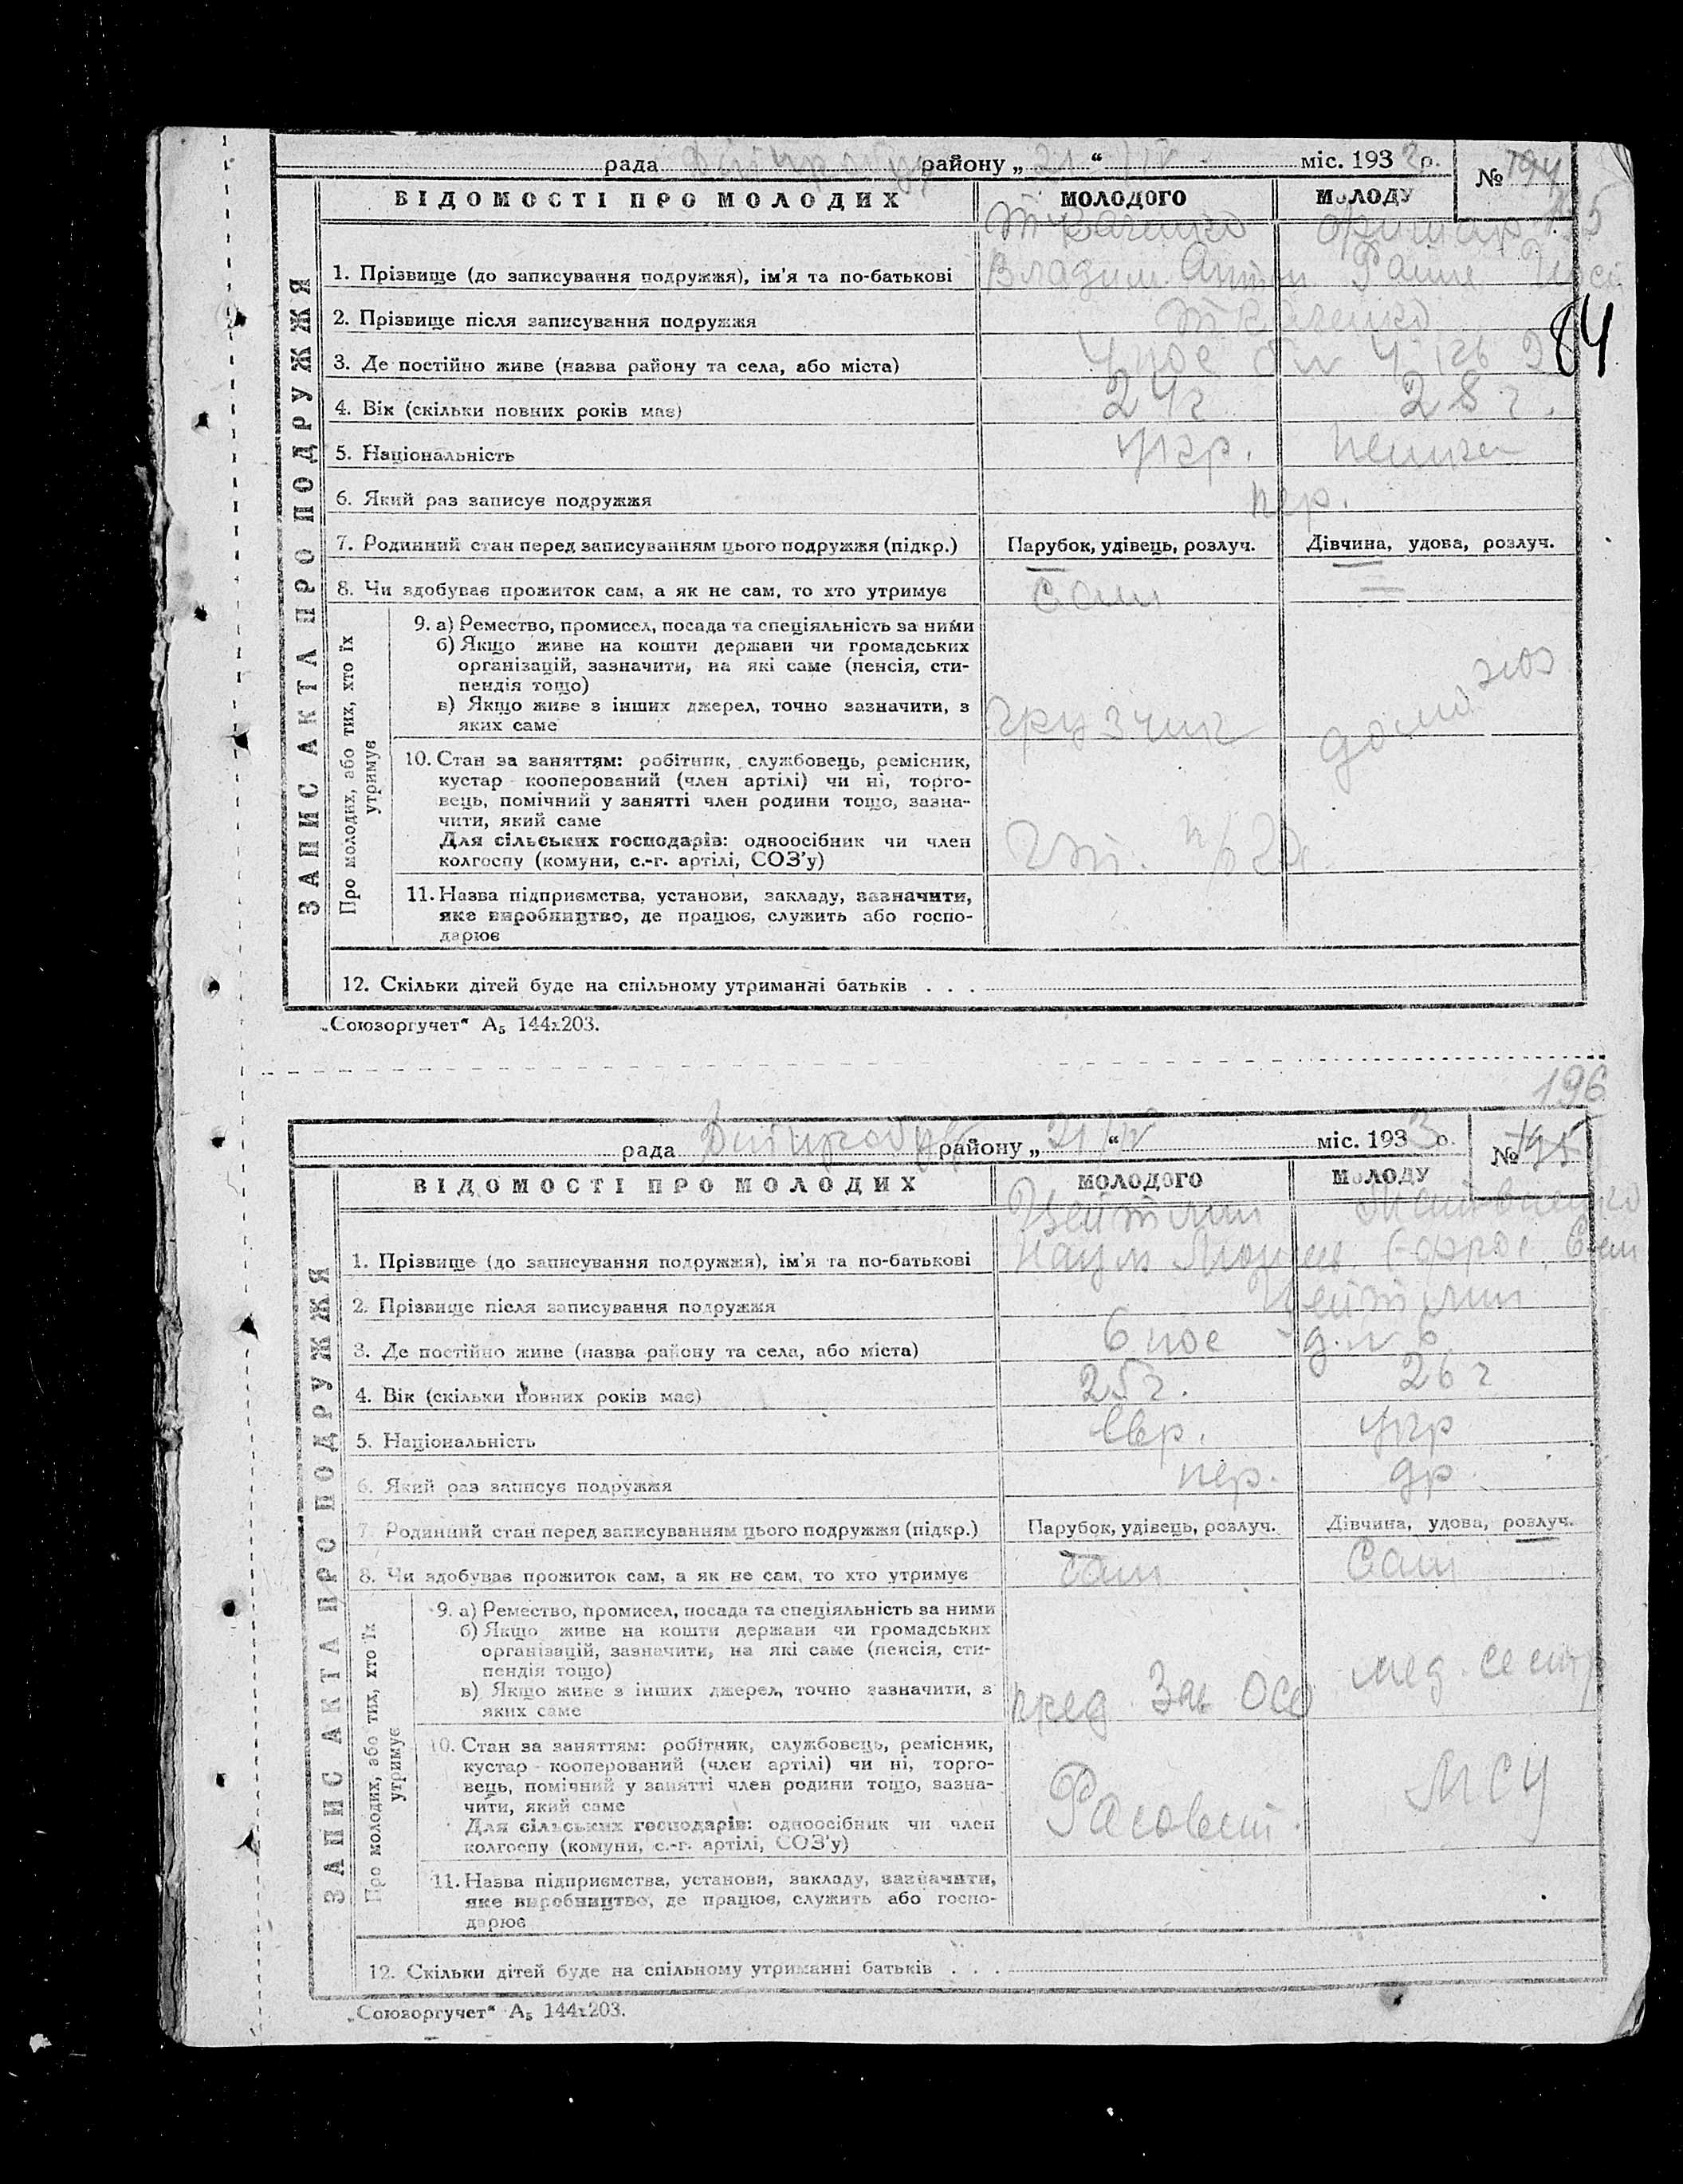 рада району „ 21 “ IV міс. 193 р. № 194
195
ВІДОМОСТІ ПРО МОЛОДИХ МОЛОДОГО МОЛОДУ
ЗАПИС АКТА ПРО ПОДРУЖЖЯ
Ткаченко
1. Прізвище (до записування подружжя), ім'я та по-батькові Владим Антон
2. Прізвище після записування подружжя Ткаченко
84
3. Де постійно живе (назва району та села, або міста) 4 пос
4. Вік (скільки повних років має) 24 г 28 г.
5. Національність укр. немка
6. Який раз записує подружжя пер.
7. Родинний стан перед записуванням цього подружжя (підкр.) Парубок, удівець, розлуч. Дівчина, удова, розлуч.
8. Чи здобуває прожиток сам, а як не сам, то хто утримує сам =
Про молодих, або тих, хто їх утримує
9. а) Ремество, промисел, посада та спеціяльність за ними
б) Якщо живе на кошти держави чи громадських
організацій, зазначити, на які саме (пенсія, сти-
пендія тощо)
в) Якщо живе з інших джерел, точно зазначити, з
яких саме
грузчик домохоз
10. Стан за заняттям: робітник, службовець, ремісник,
кустар кооперований (член артілі) чи ні, торго-
вець, помічний у занятті член родини тощо, зазна-
чити, який саме
Для сільських господарів: одноосібник чи член
колгоспу (комуни, с.-г. артілі, СОЗ'у)
11. Назва підприємства, установи, закладу, зазначити,
яке виробництво, де працює, служить або госпо-
дарює
12. Скільки дітей буде на спільному утриманні батьків . . .
„Союзоргучет“ А₅ 144х203.
196
рада району „ 21 “ IV міс. 1933 р. № 195
ВІДОМОСТІ ПРО МОЛОДИХ МОЛОДОГО МОЛОДУ
ЗАПИС АКТА ПРО ПОДРУЖЖЯ
Цейтлин
1. Прізвище (до записування подружжя), ім'я та по-батькові Наум
2. Прізвище після записування подружжя Цейтлин
3. Де постійно живе (назва району та села, або міста) 6 пос д. № 6
4. Вік (скільки повних років має) 25 г. 26 г
5. Національність евр. укр
6. Який раз записує подружжя пер. др.
7. Родинний стан перед записуванням цього подружжя (підкр.) Парубок, удівець, розлуч. Дівчина, удова, розлуч.
8. Чи здобуває прожиток сам, а як не сам, то хто утримує сам сам
Про молодих, або тих, хто їх утримує
9. а) Ремество, промисел, посада та спеціяльність за ними
б) Якщо живе на кошти держави чи громадських
організацій, зазначити, на які саме (пенсія, сти-
пендія тощо)
в) Якщо живе з інших джерел, точно зазначити, з
яких саме
пред. Зав мед. сестр
10. Стан за заняттям: робітник, службовець, ремісник,
кустар кооперований (член артілі) чи ні, торго-
вець, помічний у занятті член родини тощо, зазна-
чити, який саме
Для сільських господарів: одноосібник чи член
колгоспу (комуни, с.-г. артілі, СОЗ'у)
МСЧ
11. Назва підприємства, установи, закладу, зазначити,
яке виробництво, де працює, служить або госпо-
дарює
12. Скільки дітей буде на спільному утриманні батьків . . .
„Союзоргучет“ А₅ 144х203.